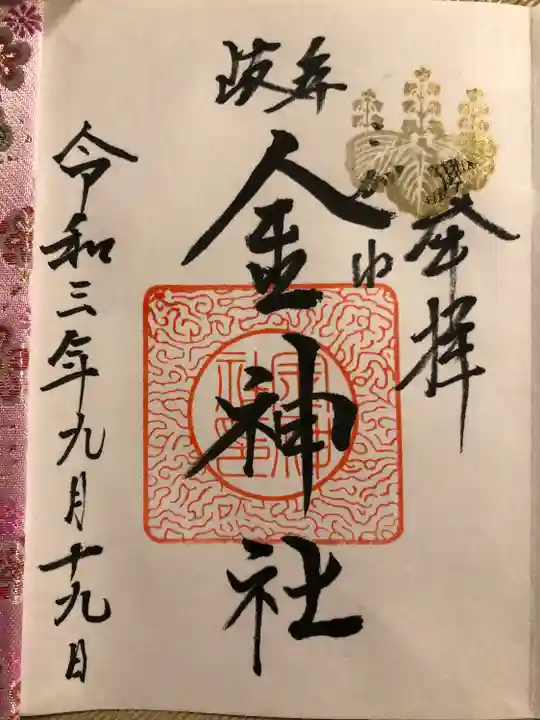 奉拝
岐阜
金神社
令和三年九月十九日